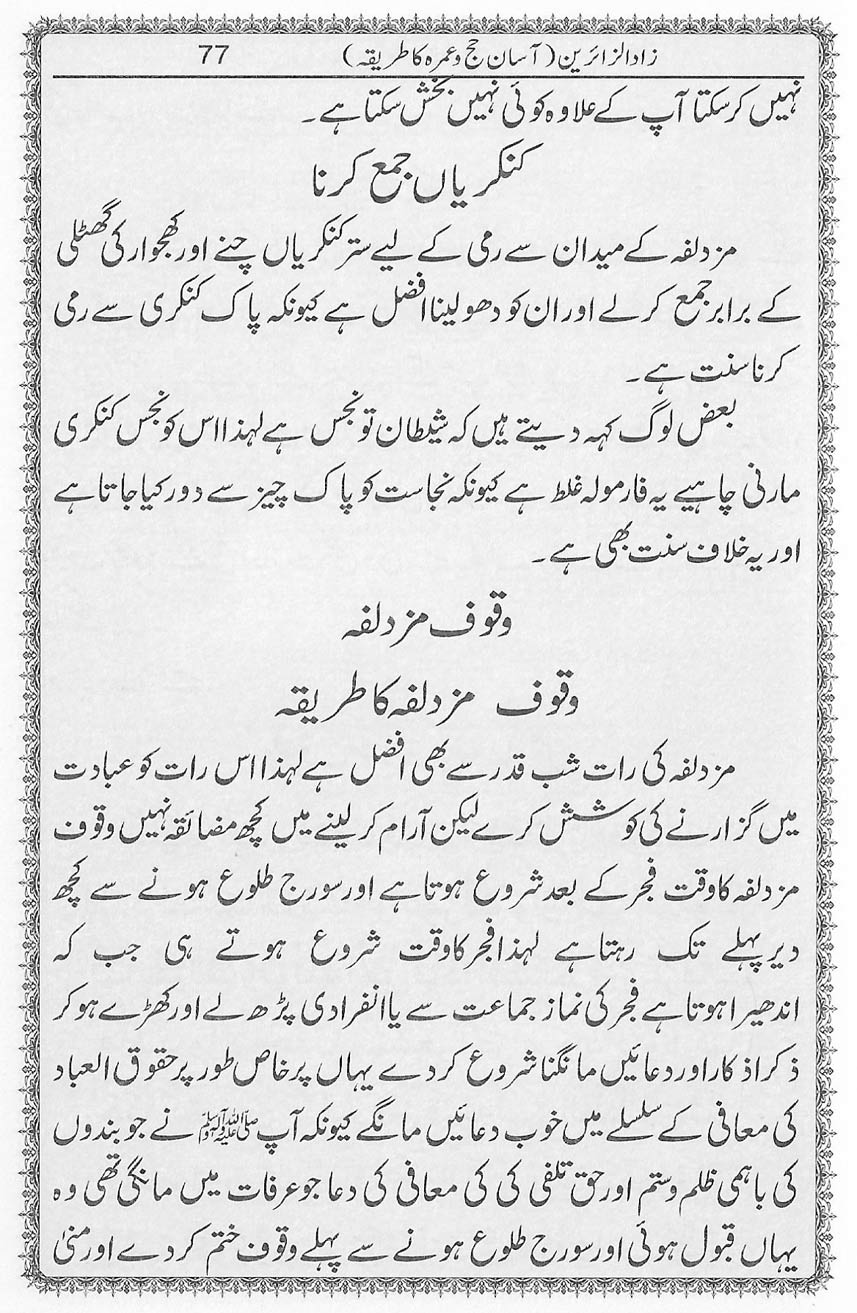 زادالزائرین (آسان حج و عمرہ کا طریقہ) 77
نہیں کرسکتا آپ کے علاوہ کوئی نہیں بخش سکتا ہے۔
کنکریاں جمع کرنا
مزدلفہ کے میدان سے رمی کے لیے ستر کنکریاں چنے اور کھجوار کی گھٹلی
کے برابر جمع کرلے اور ان کو دھولینا افضل ہے کیونکہ پاک کنکری سے رمی
کرنا سنت ہے۔
بعض لوگ کہہ دیتے ہیں کہ شیطان تو نجس ہے لہذا اس کو نجس کنکری
مارنی چاہیے یہ فارمولہ غلط ہے کیونکہ نجاست کو پاک چیز سے دور کیا جاتا ہے
اور یہ خلاف سنت بھی ہے۔
وقوف مزدلفہ
وقوف مزدلفہ کا طریقہ
مزدلفہ کی رات شب قدر سے بھی افضل ہے لہذا اس رات کو عبادت
میں گزارنے کی کوشش کرے لیکن آرام کرلینے میں کچھ مضائقہ نہیں وقوف
مزدلفہ کا وقت فجر کے بعد شروع ہوتا ہے اور سورج طلوع ہونے سے کچھ
دیر پہلے تک رہتا ہے لہذا فجر کا وقت شروع ہوتے ہی جب کہ
اندھیرا ہوتا ہے فجر کی نماز جماعت سے یا انفرادی پڑھ لے اور کھڑے ہو کر
ذکر اذکار اور دعائیں مانگنا شروع کردے یہاں پر خاص طور پر حقوق العباد
کی معافی کے سلسلے میں خوب دعائیں مانگے کیونکہ آپ ﷺ نے جو بندوں
کی باہمی ظلم و ستم اور حق تلفی کی کی معافی کی دعا جو عرفات میں مانگی تھی وہ
یہاں قبول ہوئی اور سورج طلوع ہونے سے پہلے وقوف ختم کردے اور منیٰ